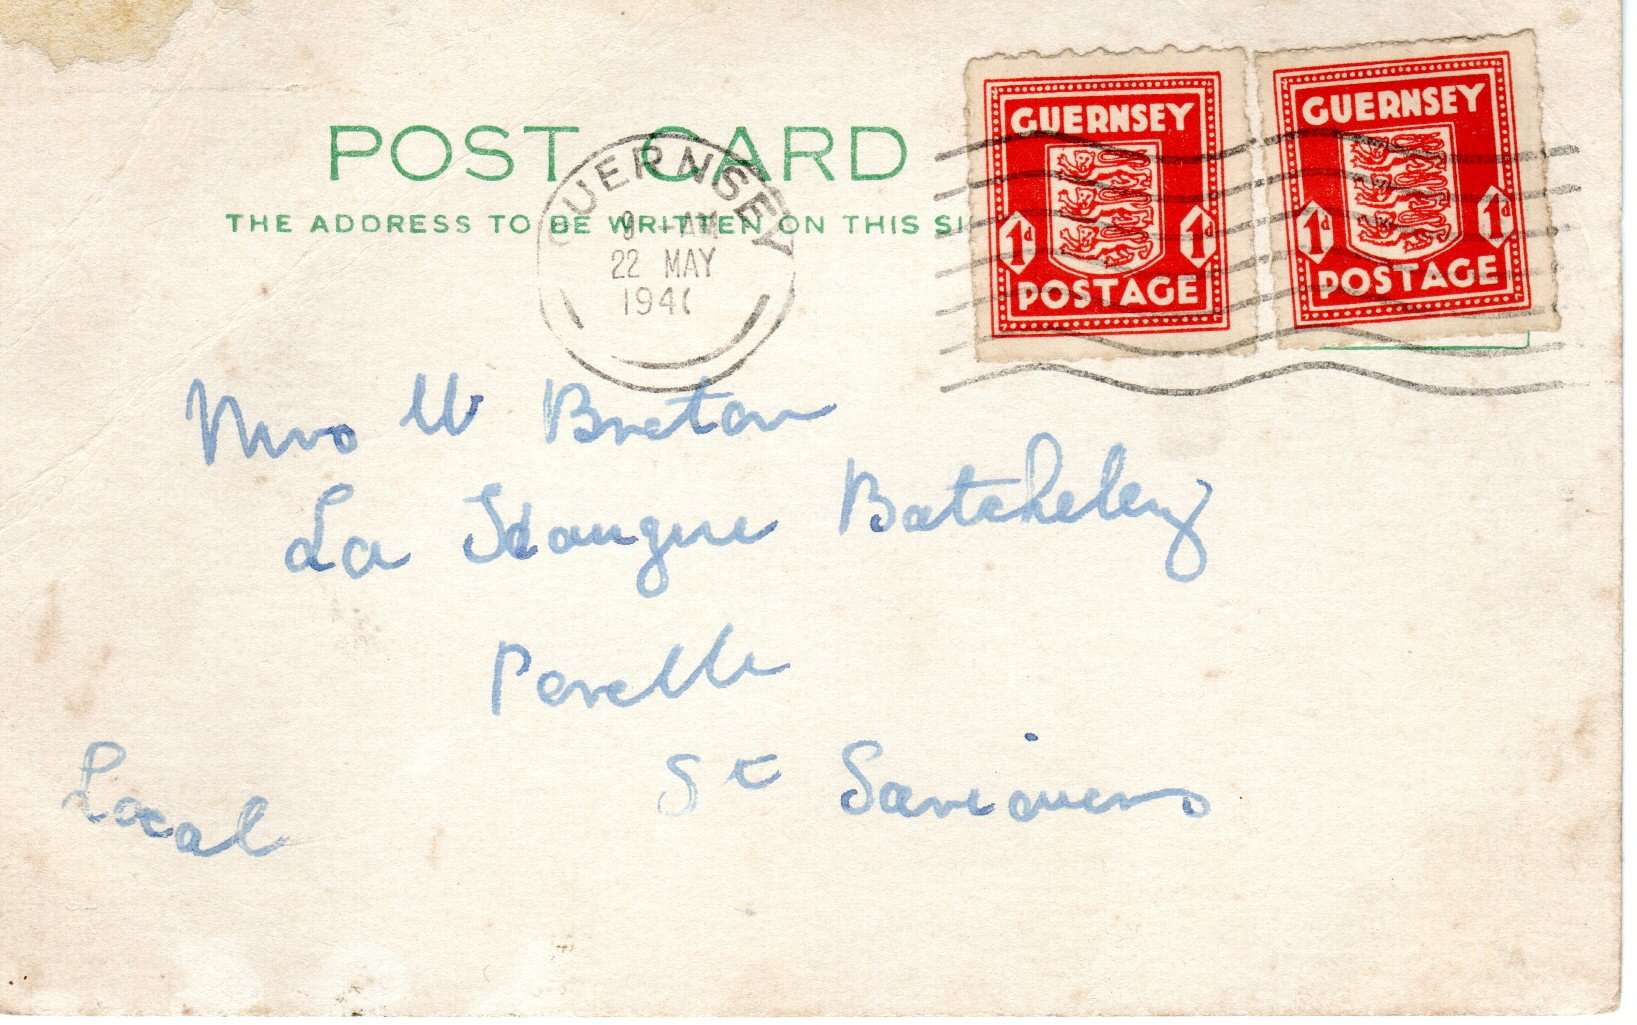 POST CARD
THE ADDRESS TO BE WRITTEN ON THIS SI
GUERNSEY
9 - AM
22 MAY
194
GUERNSEY
1d 1d
POSTAGE
GUERNSEY
1d 1d
POSTAGE
Mrs W Breton
La
Perelle
St Saviours
Local